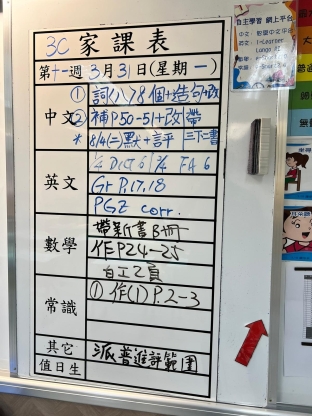 3C 家課表
第十一週 3月31日(星期一)
中文
① 詞(八)8個+造句+改
② 補P50-51+改帶
* 8/4(二)默+評 三下二書
英文
1/4 Dict 6 3/4 FA 6
Gr P.17,18
PGE corr.
數學
帶新書B冊
作P24-25
白工乙頁
常識
① 作(1) P.2-3
其它
派普進評範圍
值日生
自主學習 網上平台